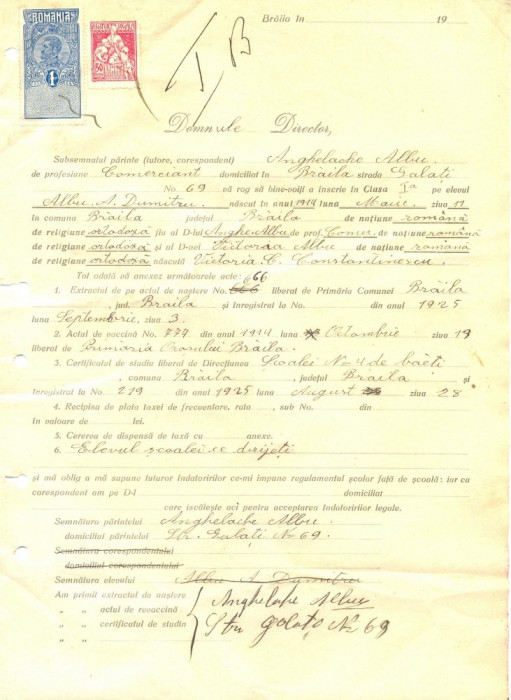 Brăila în 19
ROMANIA
1
50
I B
Domnule Director,
Subsemnatul părinte (tutore, corespondent) Anghelache Albu
de profesiune Comerciant domiciliat în Brăila strada Galați
No. 69 vă rog să bine-voiți a înscrie în Clasa Ia pe elevul
Albu A. Dumitru. născut în anul 1914 luna Maiu ziua 11
în comuna Brăila județul Brăila de națiune română
de religiune ortodoxă fiu al D-lui Anghe Albu, de prof. Comer. de națiune română
de religiune ortodoxă și al D-nei Victoria Albu de națiune română
de religiune ortodoxă născută Victoria C. Constantinescu.
Tot odată vă anexez următoarele acte:
1. Extractul de pe actul de naștere No. 666 liberat de Primăria Comunei Brăila
, jud. Braila și înregistrat la No. din anul 1925
luna Septembrie, ziua 3.
2. Actul de vaccină No. 777 din anul 1914 luna Octombrie ziua 19
liberat de Primăria Orașului Brăila.
3. Certificatul de studiu liberat de Direcțiunea Școalei No 4 de băeți
, comuna Brăila , județul Brăila și
înregistrat la No. 219 din anul 1925 luna August ziua 28
4. Recipisa de plata taxei de frecventare, rata , sub No. din
în valoare de lei.
5. Cererea de dispensă de taxă cu anexe.
6. Elevul școalei ce dirijeți
și mă oblig a mă supune tuturor îndatoririlor ce-mi impune regulamentul școlar față de școală: iar ca
corespondent am pe D-l domiciliat
care iscălește aci pentru acceptarea îndatoririlor legale.
Semnătura părintelui Anghelache Albu.
domiciliul părintelui Str. Galați No 69.
Semnătura corespondentului
domiciliul corespondentului
Semnătura elevului Albu A. Dumitru
Am primii extractul de naștere
„ „ actul de revaccină Anghelache Albu
„ „ certificatul de studiu Str Galați No 69
„ „